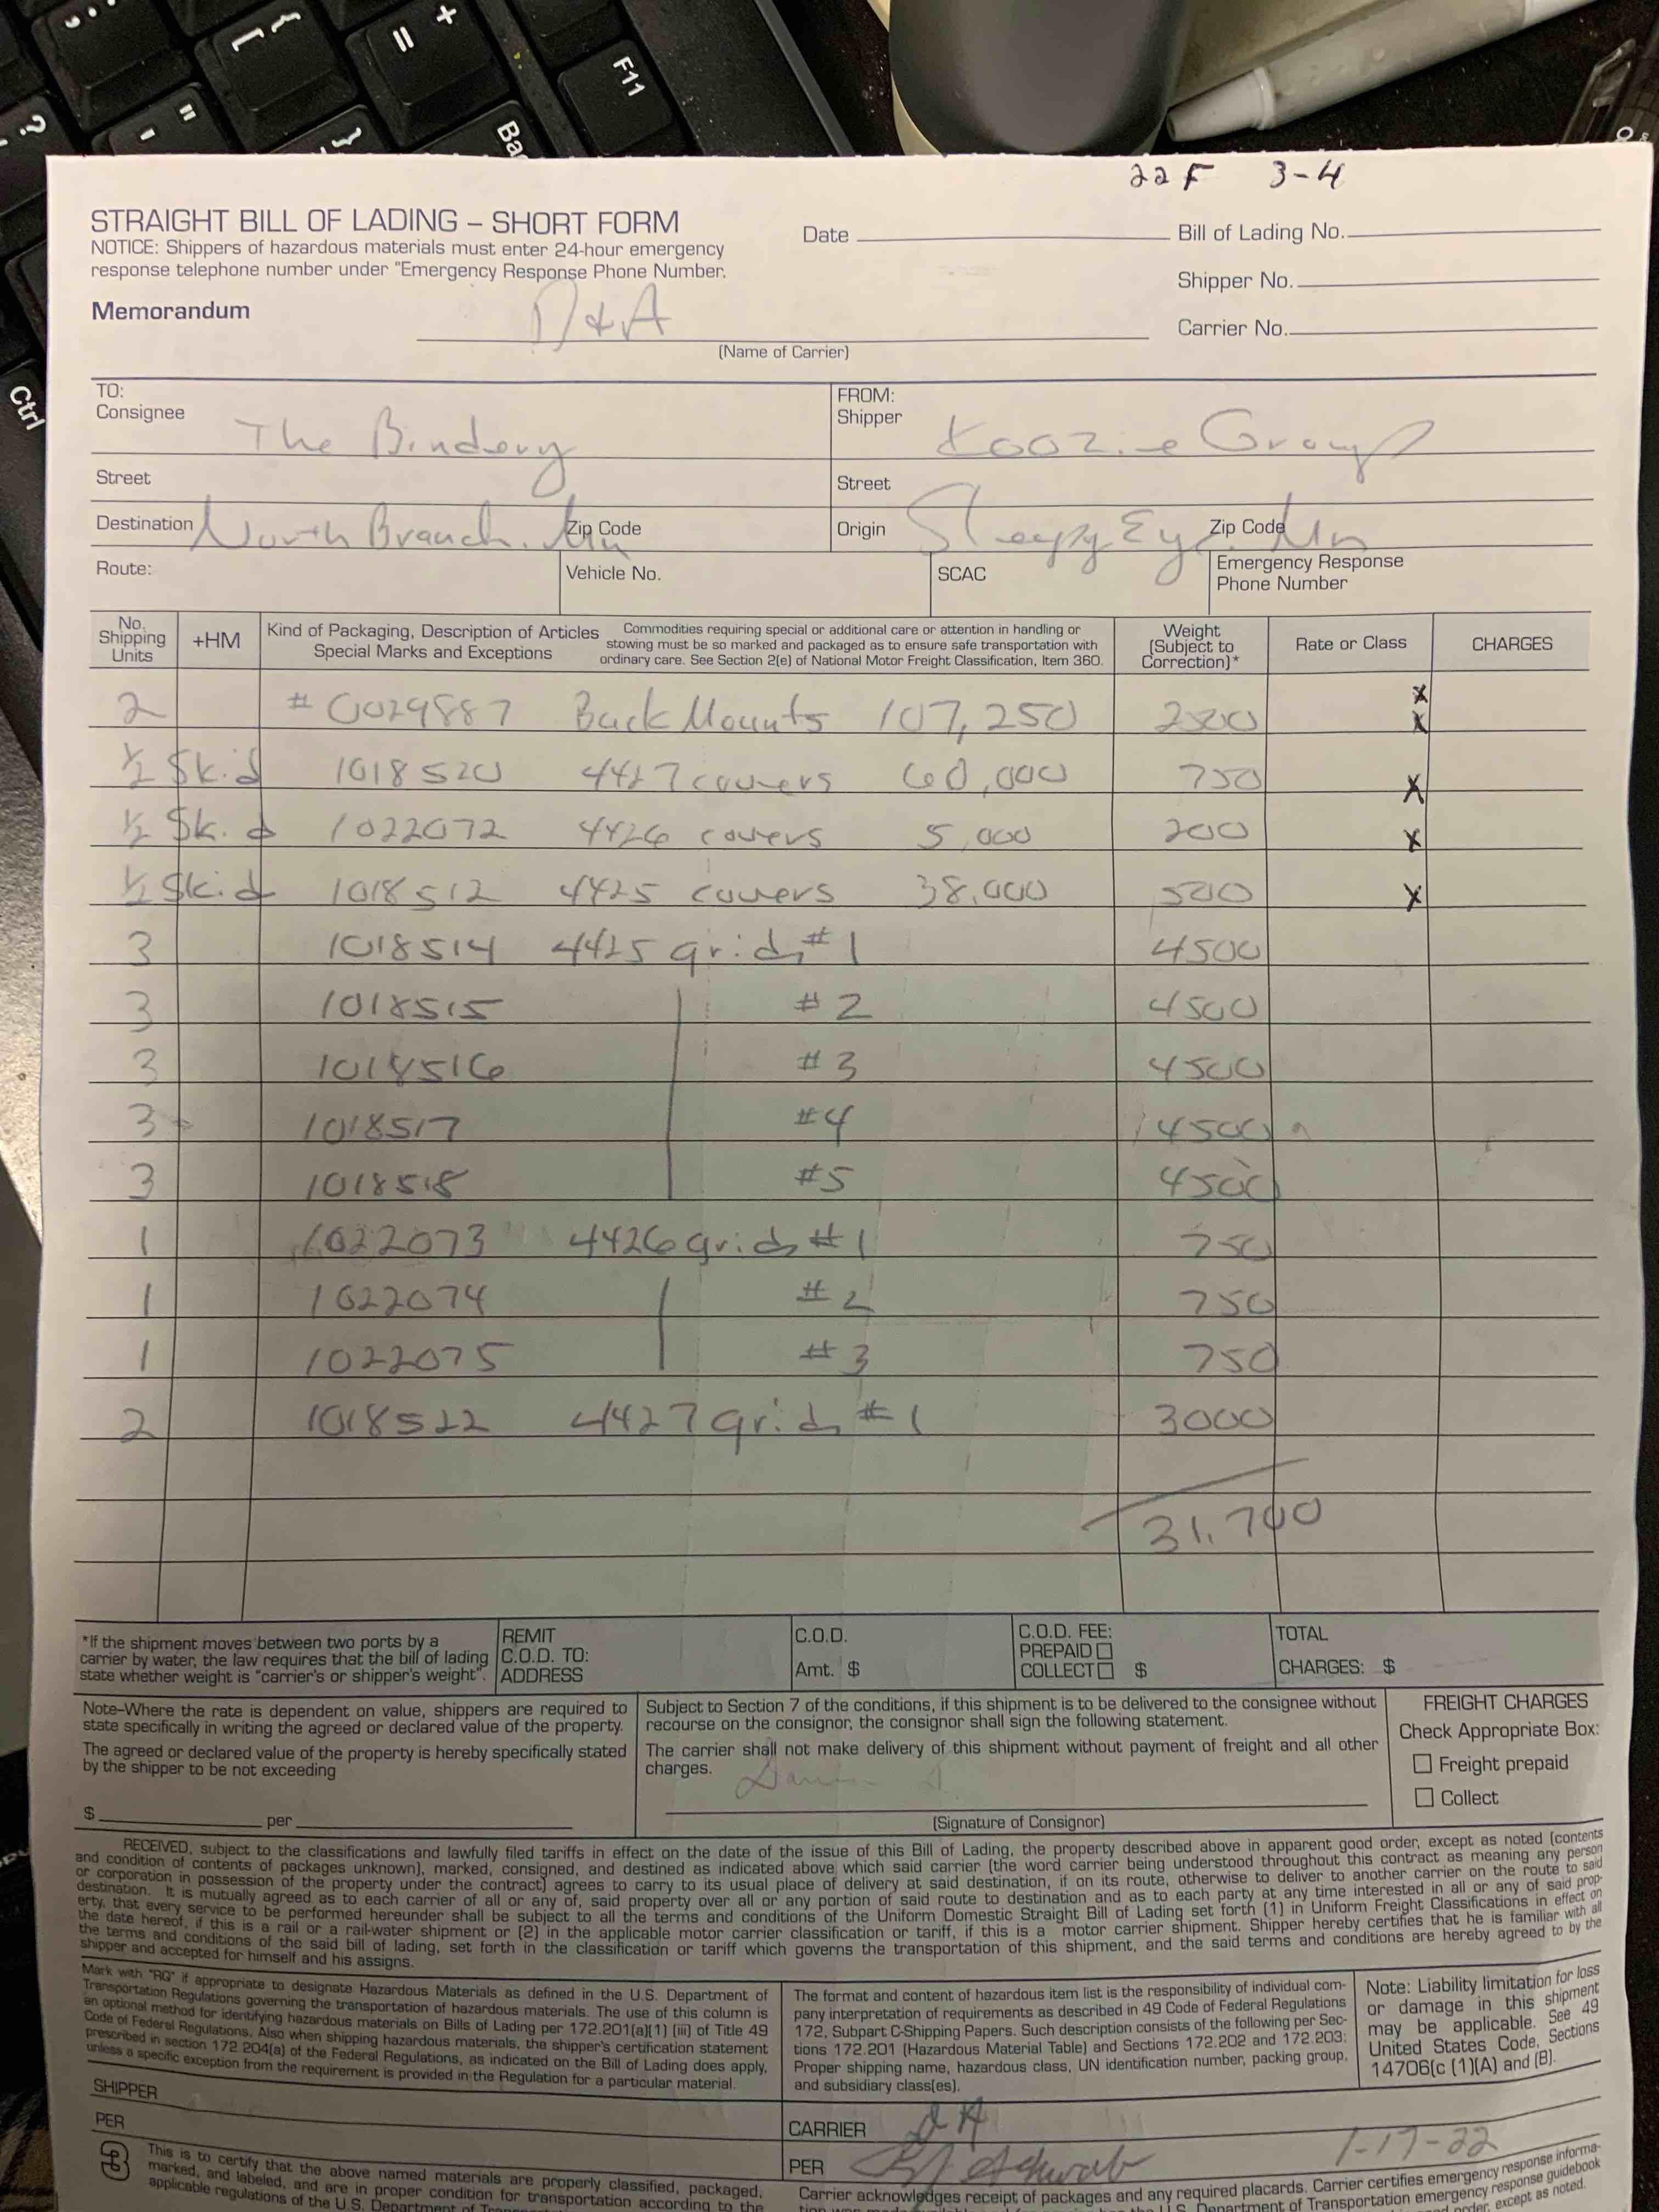 22F 3-4
STRAIGHT BILL OF LADING – SHORT FORM
NOTICE: Shippers of hazardous materials must enter 24-hour emergency
response telephone number under "Emergency Response Phone Number.
Date
Bill of Lading No.
Shipper No.
Carrier No.
Memorandum
D&A
(Name of Carrier)
TO:
Consignee The Bindery
FROM:
Shipper Koozie Group
Street
Street
Destination North Branch, Mn Zip Code
Origin Sleepy Eye Mn Zip Code
Route:
Vehicle No.
SCAC
Emergency Response
Phone Number
No. Shipping Units
+HM
Kind of Packaging, Description of Articles
Special Marks and Exceptions
Commodities requiring special or additional care or attention in handling or
stowing must be so marked and packaged as to ensure safe transportation with
ordinary care. See Section 2(e) of National Motor Freight Classification, Item 360.
Weight
(Subject to
Correction)*
Rate or Class
CHARGES
2 #0029887 Back Mounts 107,250 x x
1/2 Skid 1018520 4427 covers 60,000 750 x
1/2 Skid 1022072 4426 covers 5,000 200 x
1/2 Skid 1018512 4425 covers 38,000 500 x
3 1018514 4425 grids #1 4500
3 1018515 #2 4500
3 1018516 #3 4500
3 1018517 #4 4500
3 1018518 #5 4500
1 1022073 4426 grids #1 750
1 1022074 #2 750
1 1022075 #3 750
2 1018522 4427 grids #1 3000
31,700
*If the shipment moves between two ports by a
carrier by water, the law requires that the bill of lading
state whether weight is "carrier's or shipper's weight".
REMIT
C.O.D. TO:
ADDRESS
C.O.D.
Amt. $
C.O.D. FEE:
PREPAID
COLLECT $
TOTAL
CHARGES: $
Note–Where the rate is dependent on value, shippers are required to
state specifically in writing the agreed or declared value of the property.
The agreed or declared value of the property is hereby specifically stated
by the shipper to be not exceeding
$ per
Subject to Section 7 of the conditions, if this shipment is to be delivered to the consignee without
recourse on the consignor, the consignor shall sign the following statement.
The carrier shall not make delivery of this shipment without payment of freight and all other
charges.
(Signature of Consignor)
FREIGHT CHARGES
Check Appropriate Box:
Freight prepaid
Collect
RECEIVED, subject to the classifications and lawfully filed tariffs in effect on the date of the issue of this Bill of Lading, the property described above in apparent good order, except as noted (contents
and condition of contents of packages unknown), marked, consigned, and destined as indicated above which said carrier (the word carrier being understood throughout this contract as meaning any person
or corporation in possession of the property under the contract) agrees to carry to its usual place of delivery at said destination, if on its route, otherwise to deliver to another carrier on the route to said
destination. It is mutually agreed as to each carrier of all or any of, said property over all or any portion of said route to destination and as to each party at any time interested in all or any of said prop-
erty, that every service to be performed hereunder shall be subject to all the terms and conditions of the Uniform Domestic Straight Bill of Lading set forth (1) in Uniform Freight Classifications in effect on
the date hereof, if this is a rail or a rail-water shipment or (2) in the applicable motor carrier classification or tariff, if this is a motor carrier shipment. Shipper hereby certifies that he is familiar with all
the terms and conditions of the said bill of lading, set forth in the classification or tariff which governs the transportation of this shipment, and the said terms and conditions are hereby agreed to by the
shipper and accepted for himself and his assigns.
Mark with "RQ" if appropriate to designate Hazardous Materials as defined in the U.S. Department of
Transportation Regulations governing the transportation of hazardous materials. The use of this column is
an optional method for identifying hazardous materials on Bills of Lading per 172.201(a)(1) (iii) of Title 49
Code of Federal Regulations. Also when shipping hazardous materials, the shipper's certification statement
prescribed in section 172.204(a) of the Federal Regulations, as indicated on the Bill of Lading does apply,
unless a specific exception from the requirement is provided in the Regulation for a particular material.
The format and content of hazardous item list is the responsibility of individual com-
pany interpretation of requirements as described in 49 Code of Federal Regulations
172, Subpart C-Shipping Papers. Such description consists of the following per Sec-
tions 172.201 (Hazardous Material Table) and Sections 172.202 and 172.203:
Proper shipping name, hazardous class, UN identification number, packing group,
and subsidiary class(es).
Note: Liability limitation for loss
or damage in this shipment
may be applicable. See 49
United States Code, Sections
14706(c (1)(A) and (B).
SHIPPER
PER
CARRIER
PER BJ Schwab 1-17-22
This is to certify that the above named materials are properly classified, packaged,
marked, and labeled, and are in proper condition for transportation according to the
applicable regulations of the U.S. Department of
Carrier acknowledges receipt of packages and any required placards. Carrier certifies emergency response informa-
U.S. Department of Transportation emergency response guidebook
order, except as noted.
F11
Ctrl